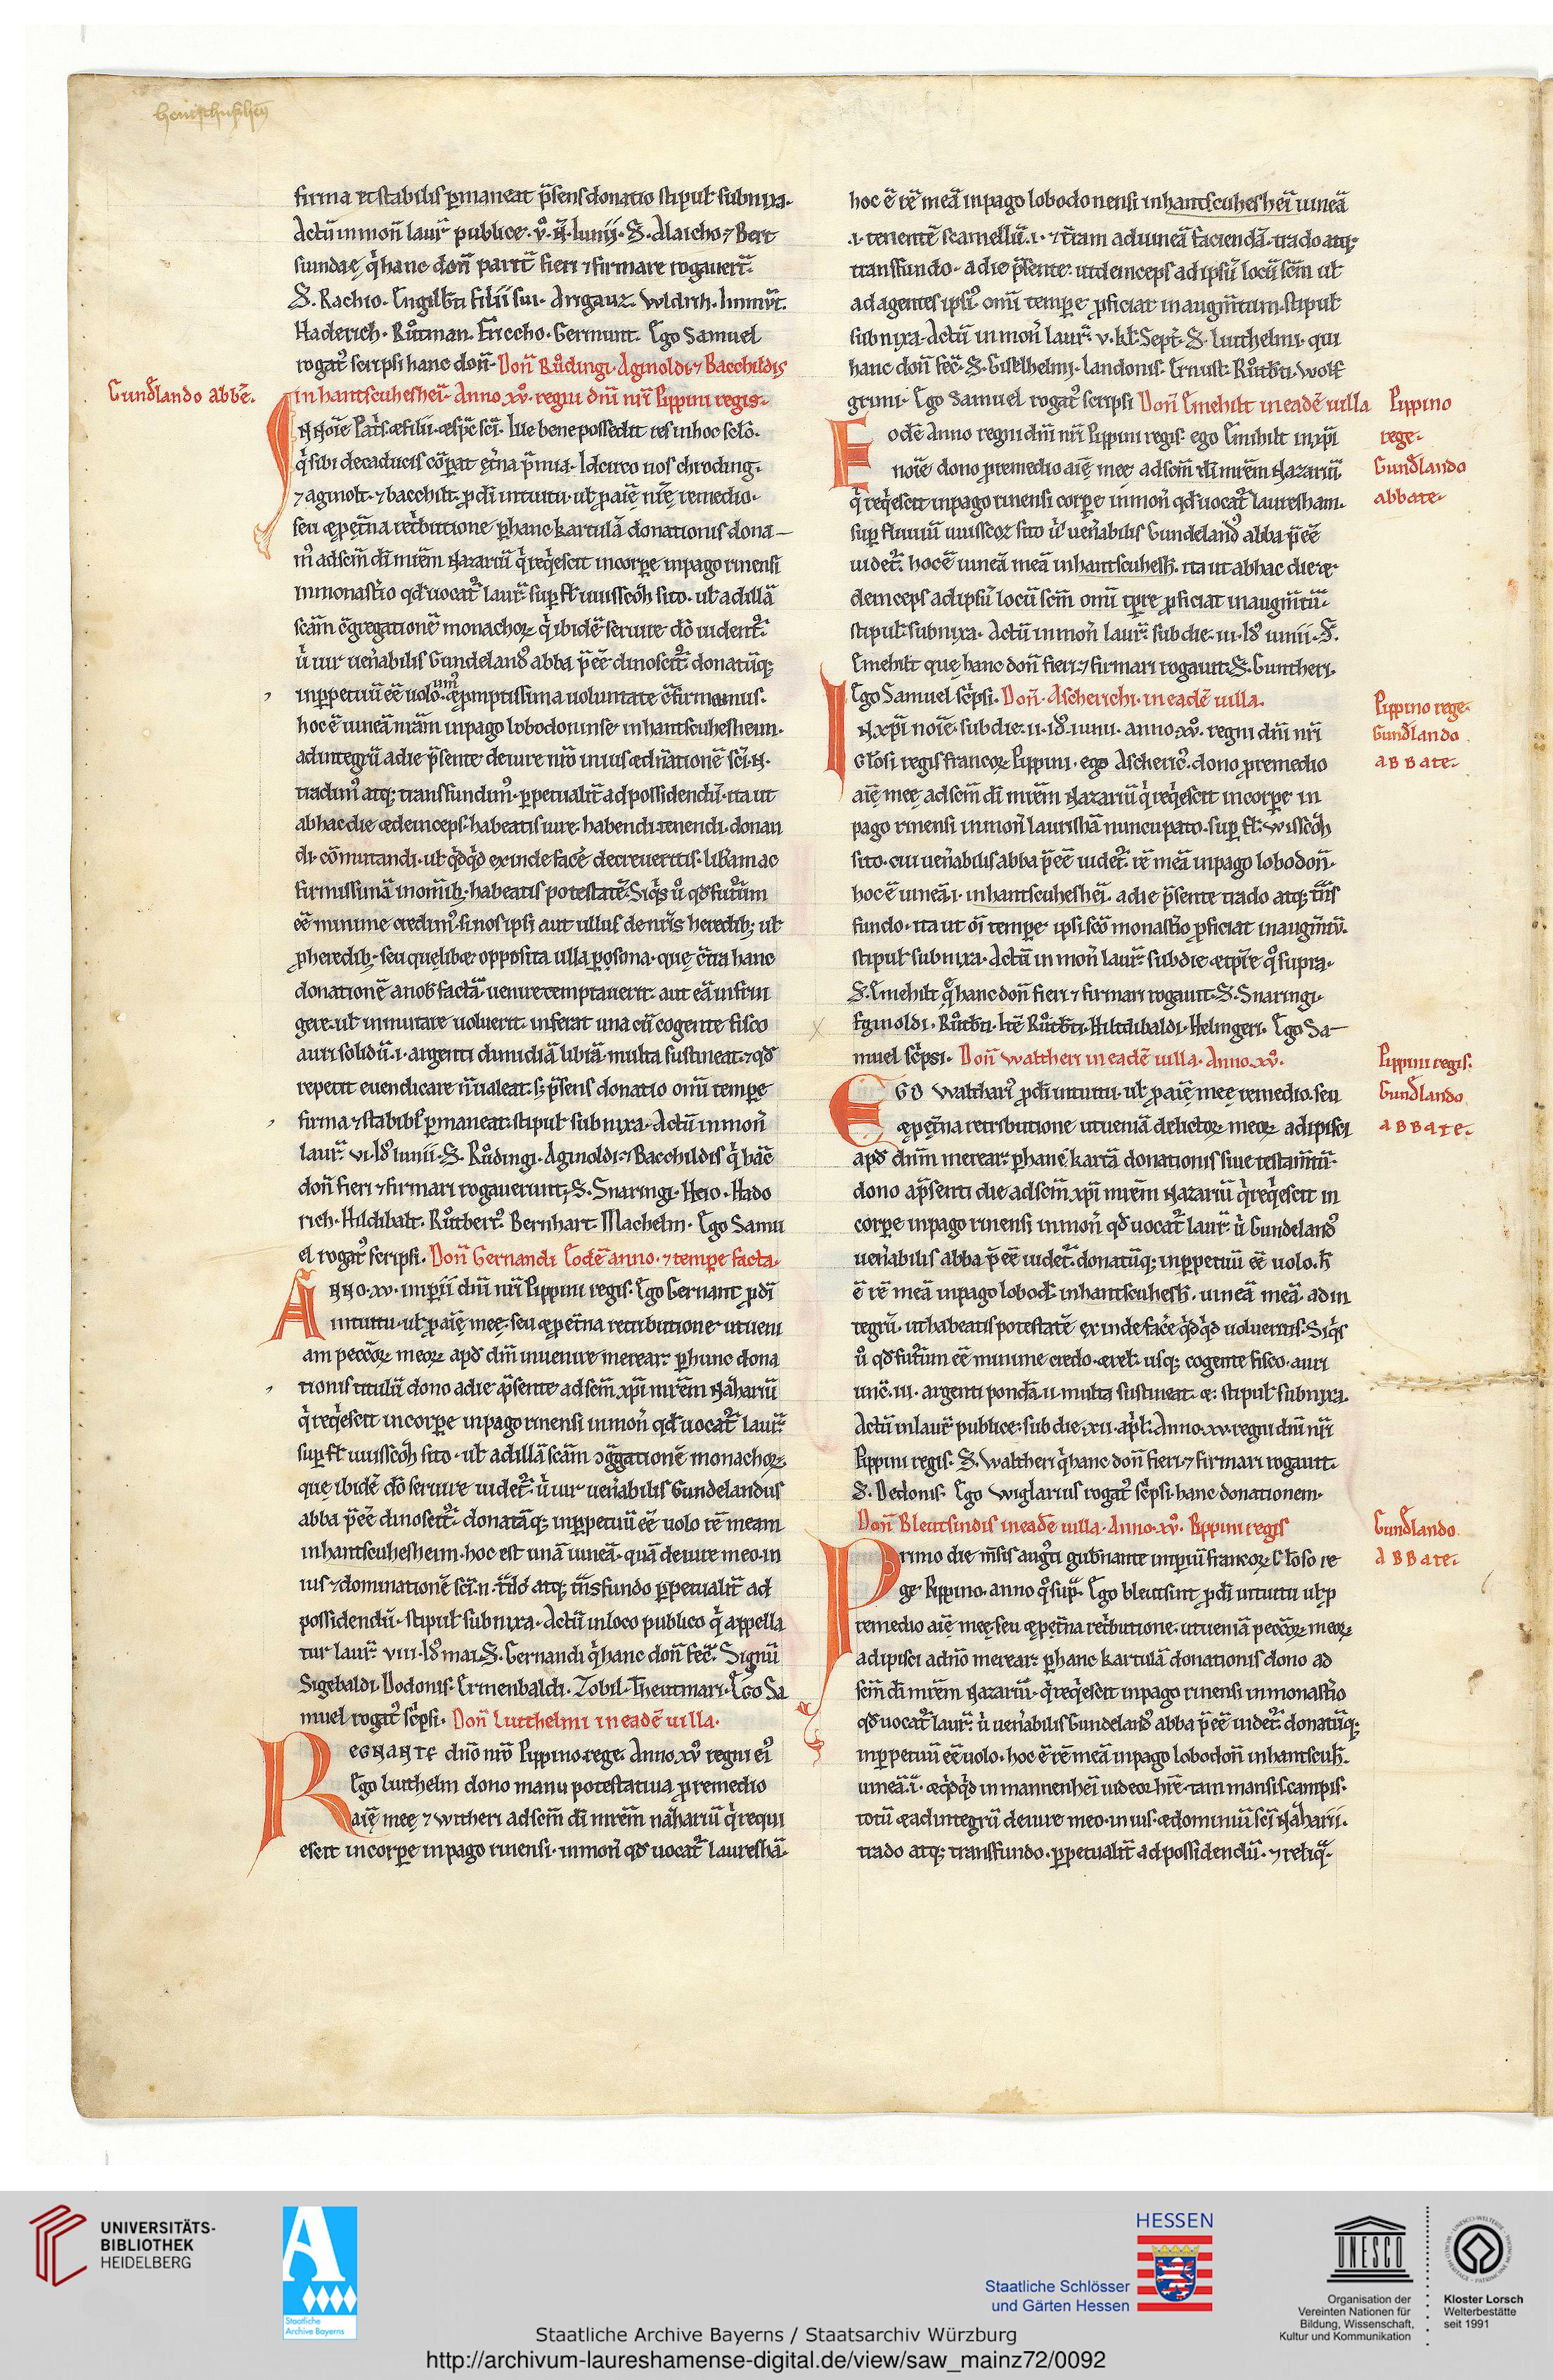 firma et stabilis p̄maneat p̄sens donatio stipuł subnixa.
Actū in moñ laur̄ publice. v̊. ñ. iunij. S. Alaicho ⁊ Bert
suindaę, q̇ hanc doñ parit̄ fieri ⁊ firmare rogauer̄t.
S. Rachio. Engilb̄ti filii sui. Arigauz. Widrih. Immo͛t.
Haderich. Růtman. Ericcho. Germunt. Ego Samuel
rogat᷒ scripsi hanc doñ. Doñ Růdingi. Aginoldi ⁊ Bacchildis
Gund̄lando abb̄e.
in hantscuheshei̅. Anno. xv̊. regni dn̄i nr̄i Pippini regis.
IN Noīe Pat͛s. ⁊ filii. ⁊ sp̄c sc̄i. Ille bene possedit res in hoc sc̄lo.
q̇ sibi de caducis cō̄parat et̄na p̄mia. Idcirco nos chroding.
⁊ aginolt. ⁊ bacchilt. ꝓ dī intuitu. uł ꝓ aīę nr̄ę remedio.
seu ꝓ et̄na ret͛butione ꝑ hanc kartulā donationis dona
m᷒ ad sc̄m dī mr̄em Nazariū q̇ req̇escit in corꝑe in pago rinensi
in monast̄io qd̄ uocat᷑ laur̄ sup̄ fł uuisscoh̄ sito. uł ad illā
sc̄am c̄gregationē monachoꝝ q̇ ibidē seruire dō uident᷑.
u̇ uir uen̄abilis Gundeland᷒ abba p̄eē dinoscit᷑. donatūq;
in ꝑpetuū eē uolo. um᷒ ⁊ ꝓmptissima uoluntate c̄firmamus.
hoc ē uineā nr̄am in pago lobodoninse in hantscuhesheim.
ad integrū a die p̄sente de iure nr̄o in ius ⁊ dn̄ationē sc̄i. N.
tradim᷒ atq; transfundim᷒. ꝑpetualit̄ ad possidendū. ita ut
ab hac die ⁊ deinceps habeatis iure habendi. tenendi. donan
di. cōmutandi. uł q̇dq̇d exinde facē decreueritis. lib̄am ac
firmissimā in om̄ib; habeatis potestatē. Siq̇s ů qd̄ futurū
eē minime credim᷒. si nos ipsi aut ullus de nr̄is heredib; uł
ꝓheredib; seu quęlibet opposita ulla ꝑsona. que c̄tra hanc
donationē a nob̄ factā uenire temptauerit. aut eā infrin
gere. uł inmutare uoluerit. inferat una cū cogente fisco
auri solidū. i. argenti dimidiā librā. multa sustineat. ⁊ qd̄
repetit euendicare n̄ ualeat. s; p̄sens donatio om̄i tempe
firma ⁊ stabił p̄maneat. stipuł subnixa. Actū in moñ
laur̄. vi. Id᷒ iunii. S. Růdingi. Aginoldi. ⁊ Bacchildis q̇ hāc
doñ fieri ⁊ firmari rogauerunt. S. Snaringi. Heio. Hado
rich. Hildibalt. Růtbert᷒. Bernhart. Machelm. Ego Samu
el rogat᷒ scripsi. Doñ Gernandi Eodē anno. ⁊ tempe facta.
ANNO. xv. imꝑii dn̄i nr̄i Pippini regis. Ego Gernant ꝓ dī
intuitu. uł ꝓ aīę meę. seu ꝓ et̄na retributione. ut ueni
am peccō̄ꝝ meoꝝ apd̄ dn̄m inuenire merear. ꝑ hunc dona
tionis titulū dono a die p̄sente ad sc̄m xp̄i mr̄em Nazariū
q̇ req̇escit in corꝑe in pago rinensi in moñ qd̄ uocat᷑ laur̄.
sup̄ fł uuisscoh̄ sito. uł ad illā sc̄am ꝯg̈gationē monachoꝝ.
que ibidē dō seruire uidet᷑. u̇ uir uen̄abilis Gundelandus
abba p̄eē dinoscit᷑. donatāq; in ꝑpetuū eē uolo rē meam
in hantscuhesheim. hoc est unā uineā. quā de iure meo. in
ius ⁊ dominationē sc̄i. n. tr̄do atq; tr̄nsfundo ꝑpetualit̄ ad
possidendū. stipuł subnixa. Actū in loco publico q̇ appella
tur laur̄. viii. Id᷒ mai. S. Gernandi q̇ hanc doñ fec̄. Signū
Sigebaldi. Dodonis. Ermenbaldi. Zobil. Theutmari. Ego Sa
muel rogat᷒ sc͛psi. Doñ Lutthelmi in eadē uilla.
REGNANTE dn̄o nr̄o Pippino rege. Anno. xv̊ regni ei᷒
Ego lutthelm dono manu potestatiua ꝓ remedio
aīę meę ⁊ witheri ad sc̄m dī mr̄em nazhariū q̇ requi
escit in corꝑe in pago rinensi. in moñ qd̄ uocat᷑ laureshā.
hoc ē rē meā in pago lobodonensi in hantscuheshei̅ uineā
.i. tenentē scamellū. i. ⁊ t̄ram ad uineā faciendā. trado atq;
transfundo. a die p̄sente. ut deinceps ad ipsū locū sc̄m uł
ad agentes ipsi᷒ om̄i tempe ꝓficiat in augm̄tum. stipuł
subnixa. Actū in moñ laur̄. v. kł. Sept̄. S. lutthelmi. qui
hanc doñ fec̄. S. Giselhelmi. landonis. Ernust. Růtb̄ti. Wolf
grimi. Ego Samuel rogat᷒ scripsi Doñ Emehilt in eadē uilla
Pippino
rege.
Gundlando
abbate.
Eodē Anno regni dn̄i nr̄i Pippini regis. ego Emihilt in xp̄i
noīe dono ꝓ remedio aīę meę ad sc̄m dī mr̄em Nazariū
q̇ req̇escit in pago rinensi corꝑe in moñ qd̄ uocat᷑ lauresham.
sup̄ fluuiū uuisscoz sito u̇ uen̄abilis Gundeland᷒ abba p̄eē
uidet᷑. hoc ē uineā meā in hantscuhesh̄. ita ut ab hac die ⁊
deinceps ad ipsū locū sc̄m om̄i tp̄re ꝓficiat in augm̄tū.
stipuł subnixa. Actū in moñ laur̄ sub die. iii. Id᷒ iunii. S.
Emehilt quę hanc doñ fieri. ⁊ firmari rogauit. S. Guntheri.
Ego Samuel sc͛psi. Doñ. Ascherichi. in eadē uilla.
Pippino rege.
Gundlando
abbate.
IN xp̄i noīe. sub die. ii. Id᷒. iunii. anno. xv̊. regni dn̄i nr̄i
Głosi regis francoꝝ Pippini. ego Ascheric᷒. dono ꝓ remedio
aīę meę ad sc̄m dī mr̄em Nazariū q̇ req̇escit in corꝑe in
pago rinensi in moñ laurishā nuncupato. sup̄ fł. wisscoh̄
sito. cui uen̄abilis abba p̄eē uidet᷑. rē meā in pago lobodoñ.
hoc ē uineā. i. in hantscuheshei̅. a die p̄sente trado atq; tr̄ns
fundo. ita ut oī tempe ipsi sc̄o monast̄io ꝓficiat in augm̄tū.
stipuł subnixa. Actū in moñ laur̄ sub die ⁊ tp̄re q̊ supra.
S. Emehilt q̇ hanc doñ fieri ⁊ firmari rogauit. S. Snaringi.
Eginoldi. Růtb̄ti. Itē Růtb̄ti. Hiltdibaldi. Helmgeri. Ego Sa
muel sc͛psi. Doñ Waltheri in eadē uilla. Anno. xv̊.
Pippini regis.
Gundlando
abbate.
EGO Walthari᷒ ꝓ dī intuitu. uł ꝓ aīę meę remedio. seu
ꝓ et̄na retributione ut ueniā delictoꝝ meoꝝ adipisci
apd̄ dn̄m merear. ꝑ hanc kartā donationis siue testam̄tū.
dono a p̄senti die ad sc̄m xp̄i mr̄em Nazariū q̇ req̇escit in
corꝑe in pago rinensi in moñ qd̄ uocat᷑ laur̄ u̇ Gundeland᷒
uen̄abilis abba p̄eē uidet᷑. donatūq; in ꝑpetuū eē uolo. h̄
ē rē meā in pago lobod̄. in hantscuhesh̄. uineā meā. ad in
tegrū. ut habeatis potestatē exinde facē q̇dq̇d uolueritis. Siq̇s
ů qd̄ futurū eē minime credo. ⁊ reł. usq; cogente fisco. auri
unc̄. iii. argenti pond̄a. ii. multa sustineat. ⁊. stipuł subnixa.
Actū in laur̄ publice. sub die. xii. ap͛ł. Anno. xv. regni dn̄i nr̄i
Pippini regis. S. Waltheri q̇ hanc doñ fieri. ⁊ firmari rogauit.
S. Dedonis. Ego Wiglarius rogat᷒ sc͛psi. hanc donationem.
Doñ Bleutsindis in eadē uilla. Anno. xv̊. Pippini regis
Gundlando
abbate.
Primo die m̄sis aug᷒ti gub̄nante imꝑiū francoꝝ Głoso re
ge Pippino. anno q̊ sup̄. Ego bleutsint ꝓ dī intuitu uł ꝓ
remedio aīę meę. seu ꝓ et̄na ret͛butione. ut ueniā peccō̄ꝝ meoꝝ
adipisci a dn̄o merear. ꝑ hanc kartulā donationis dono ad
sc̄m dī mr̄em Nazariū. q̇ req̇escit in pago rinensi in monast̄io
qd̄ uocat᷑ laur̄. u̇ uen̄abilis Gundeland᷒ abba p̄eē uidet᷑. donatūq;
in ꝑpetuū eē uolo. hoc ē rē meā in pago lobodoñ in hantscuh̄.
uineā. i. ⁊ q̇dq̇d in mannenhei̅ uideor hr̄e. tam mansis. campis.
totū ⁊ ad integrū de iure meo. in ius. ⁊ dominiū sc̄i Nazharii.
trado atq; transfundo. ꝑpetualit̄ ad possidendū. ⁊ reliq̄.
UNIVERSITÄTS-
BIBLIOTHEK
HEIDELBERG
Staatliche
Archive Bayerns
HESSEN
Staatliche Schlösser
und Gärten Hessen
UNESCO
Organisation der
Vereinten Nationen für
Bildung, Wissenschaft,
Kultur und Kommunikation
Kloster Lorsch
Welterbestätte
seit 1991
Staatliche Archive Bayerns / Staatsarchiv Würzburg
http://archivum-laureshamense-digital.de/view/saw_mainz72/0092